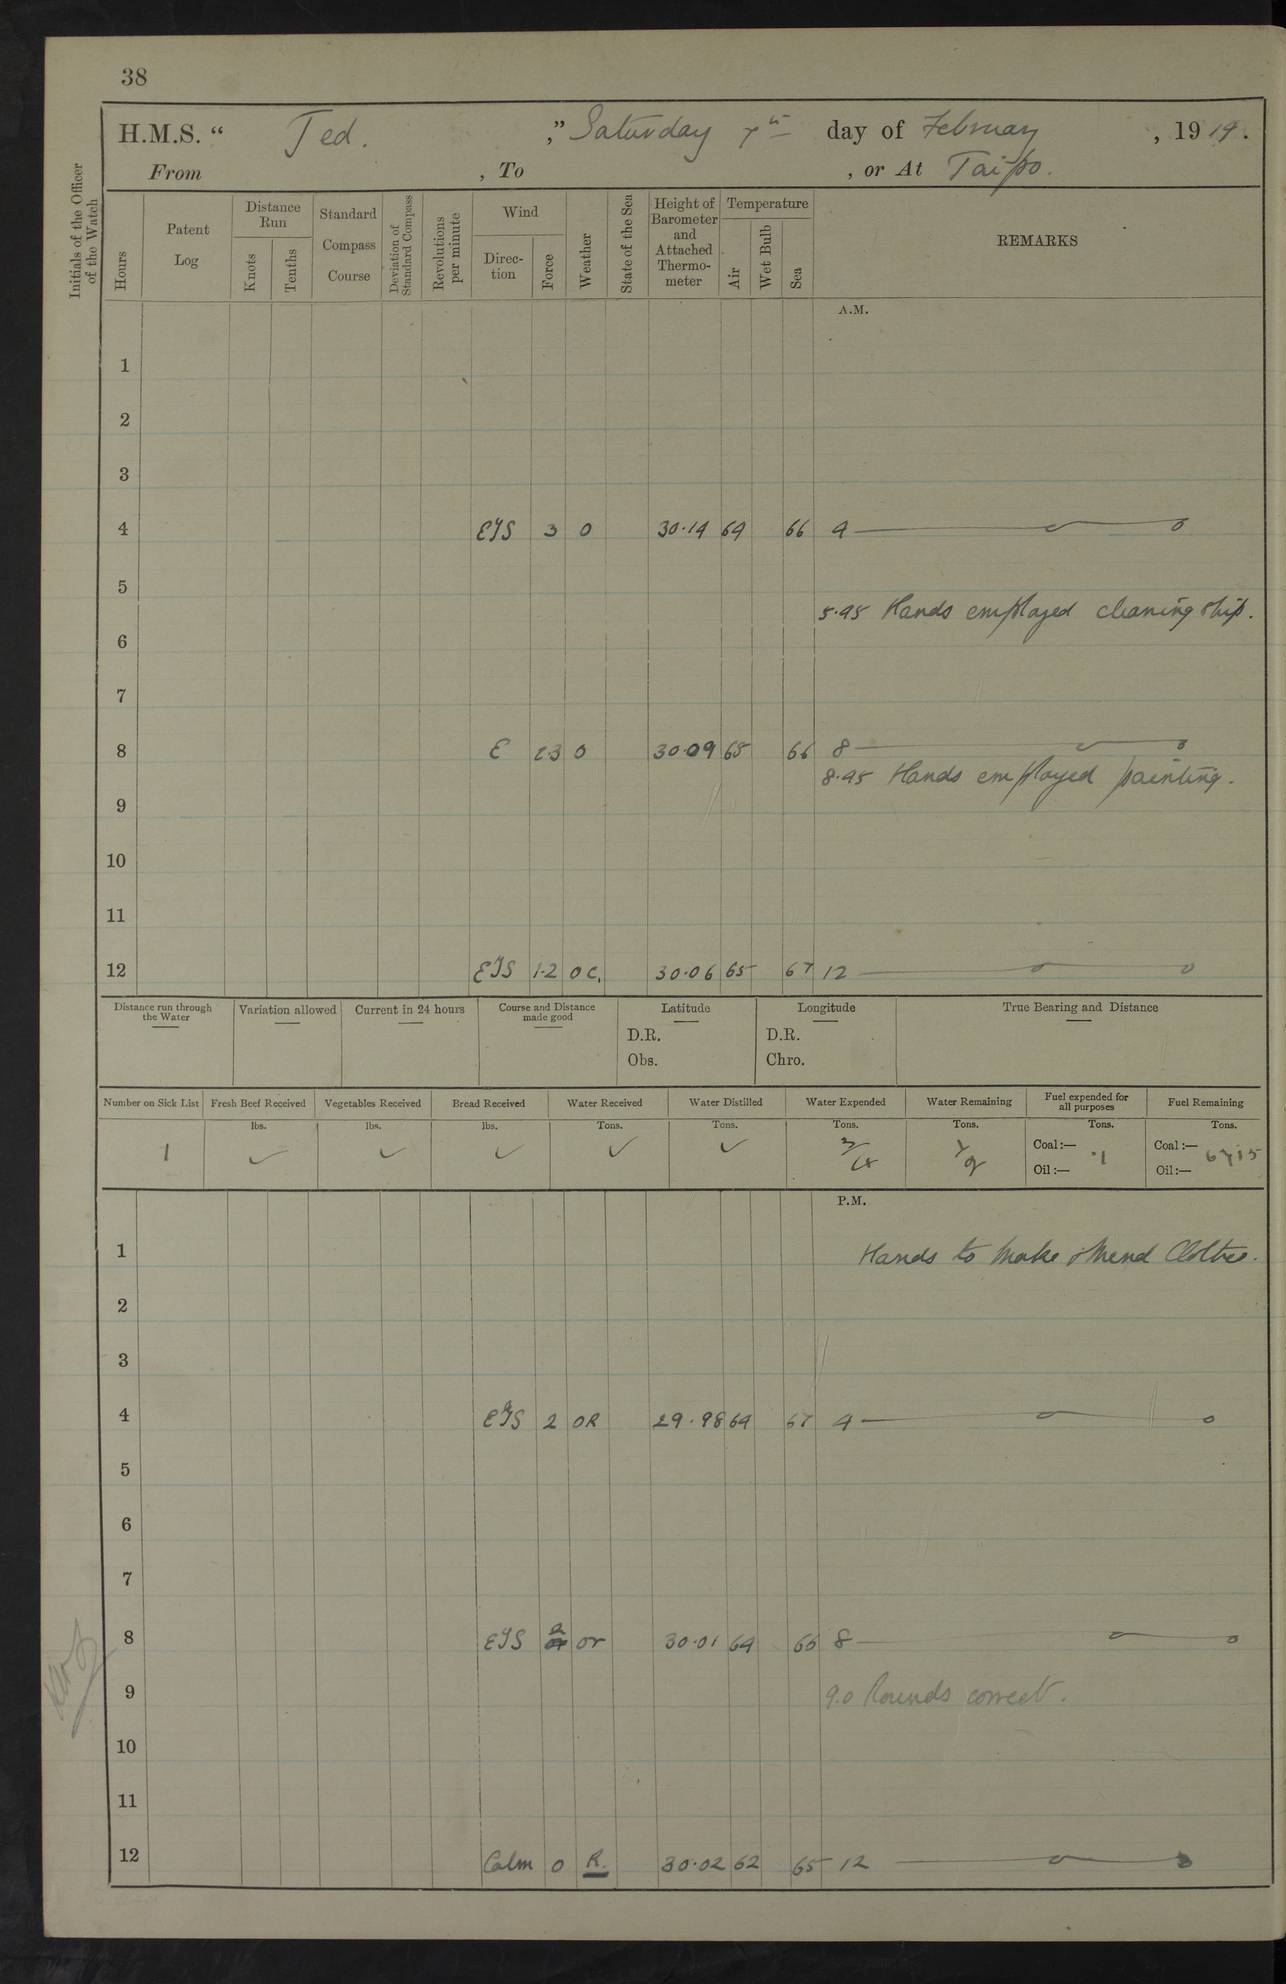 38
H.M.S. “ Ted. ,” Saturday 7th day of February , 1914.
From , To , or At Taipo.
Initials of the Officer of the Watch
Hours
Patent Log
Distance Run
Knots
Tenths
Standard Compass Course
Deviation of Standard Compass
Revolutions per minute
Wind
Direction
Force
Weather
State of the Sea
Height of Barometer and Attached Thermometer
Temperature
Air
Wet Bulb
Sea
REMARKS
A.M.
1
2
3
4 EyS 3 O 30.14 64 66 4
5
5.45 Hands employed cleaning ship.
6
7
8 E 2.3 O 30.09 65 66 8
8.45 Hands employed painting.
9
10
11
12 EyS 1.2 O C. 30.06 65 67 12
Distance run through the Water
Variation allowed
Current in 24 hours
Course and Distance made good
Latitude
D.R.
Obs.
Longitude
D.R.
Chro.
True Bearing and Distance
Number on Sick List Fresh Beef Received Vegetables Received Bread Received Water Received Water Distilled Water Expended Water Remaining Fuel expended for all purposes Fuel Remaining
lbs. lbs. lbs. Tons. Tons. Tons. Tons. Tons. Tons.
1 ✓ ✓ ✓ ✓ ✓ 3/4 Coal:— .1 Coal:—
Oil:— Oil:—
P.M.
1 Hands to make & mend Clothes.
2
3
4 EyS 2 OR 29.98 64 67 4
5
6
7
8 EyS 2 or 30.01 64 66 8
9 9.0 Rounds correct.
10
11
12 Calm 0 R. 30.02 62 65 12